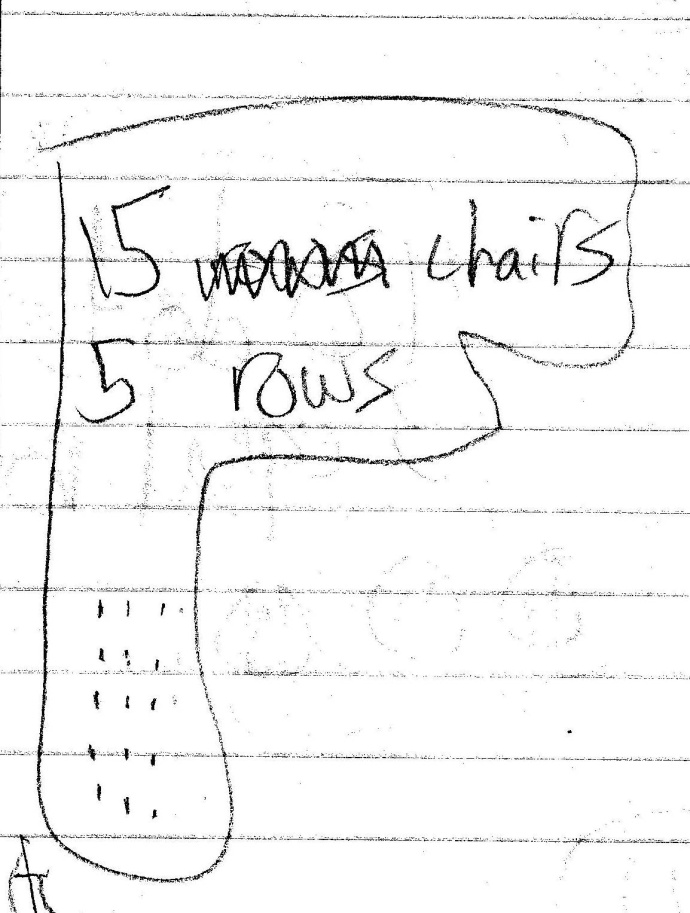 15 chairs
5 rows